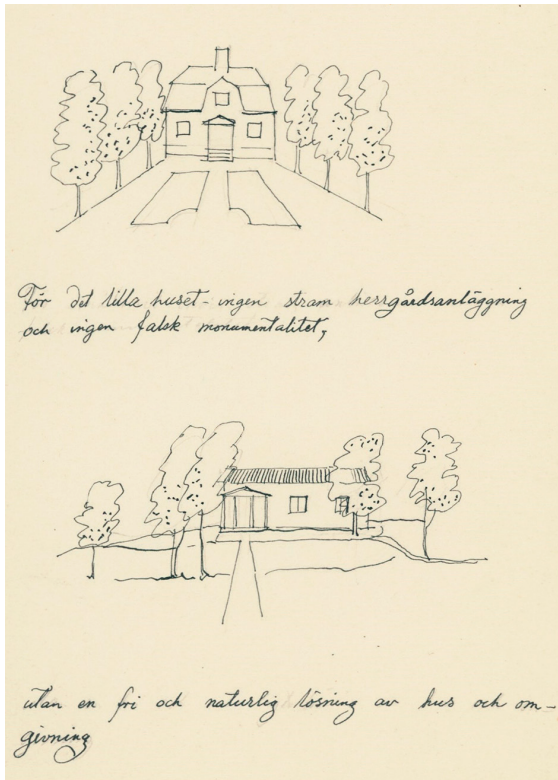 För det lilla huset - ingen stram herrgårdsanläggning
och ingen falsk monumentalitet,
utan en fri och naturlig lösning av hus och om-
givning